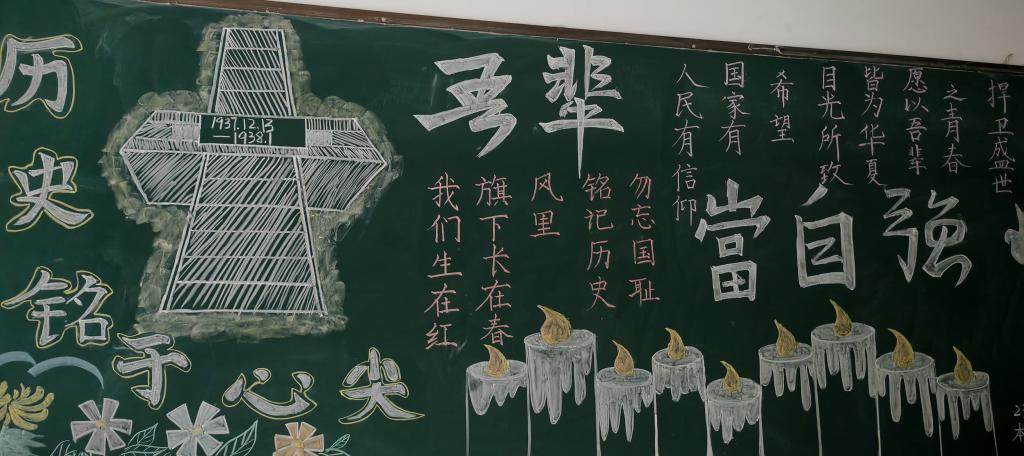 历史铭于心尖
1937.12.13
—1938.1
吾辈
當自強
勿忘国耻
铭记历史
风里
旗下长在春
我们生在红
捍卫盛世
之青春
愿以吾辈
皆为华夏
目光所致
希望
国家有
人民有信仰